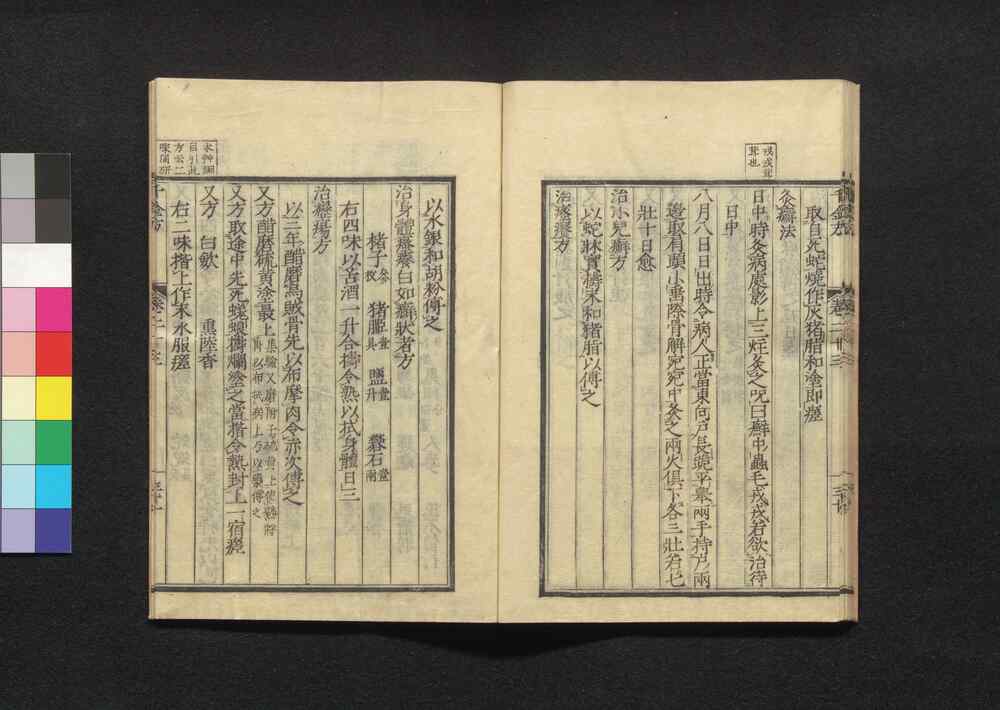 取自死蛇燒作灰猪脂和塗即瘥
灸癬法
日中時灸病處影上三炷灸之呪曰癬中蟲毛戎戎若欲治待
日中
八月八日日出時令病人正當東向戶長跪平舉兩手持戶兩
邊取肩頭小垂際骨解宛宛中灸之兩火俱下各三壯若七
壯十日愈
治小兒癬方
以蛇牀實擣末和猪脂以傅之
治瘑瘍方
以水銀和胡粉傅之
治身體瘡瘍白如癬狀者方
楮子 三枚 猪胰 壹具 鹽 壹升 礬石 壹兩
右四味以苦酒一升合擣令熟以拭身體日三
治癧瘍方
以三年醋磨烏賊骨先以布摩肉令赤次傅之
又方 醋磨硫黃塗最上 集驗又磨附子硫黃上使熟將
臥以布拭病上乃以藥傅之
又方 取途中先死蜣蜋擣爛塗之當揩令熱封上一宿瘥
又方 白斂 熏陸香
右二味揩上作末水服瘥